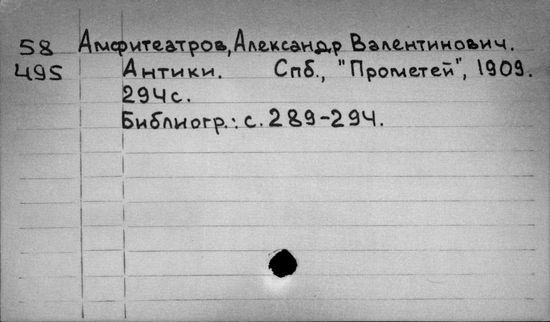 58 Амфитеатров, Александр Валентинович.
495 Антики. Спб., "Прометей", 1909.
294с.
Библиогр.: с. 289-294.